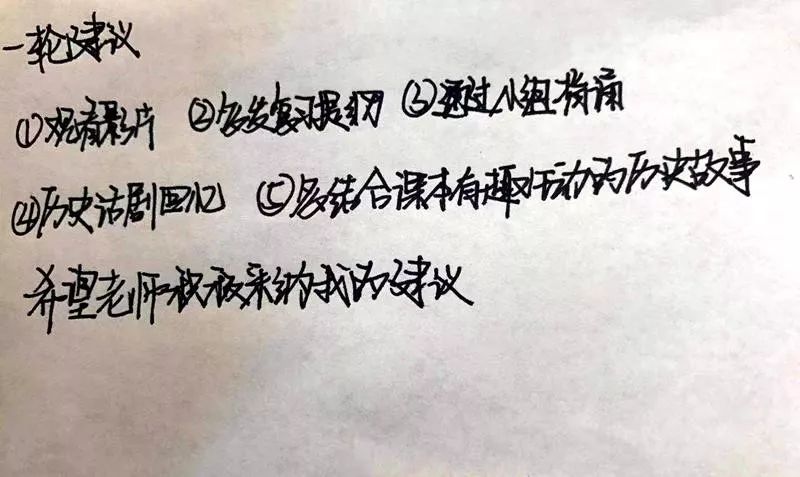 一轮建议
①观看影片 ②多发复习提纲 ③通过小组背诵
④历史话剧回忆 ⑤多结合课本有趣生动的历史故事
希望老师积极采纳我的建议